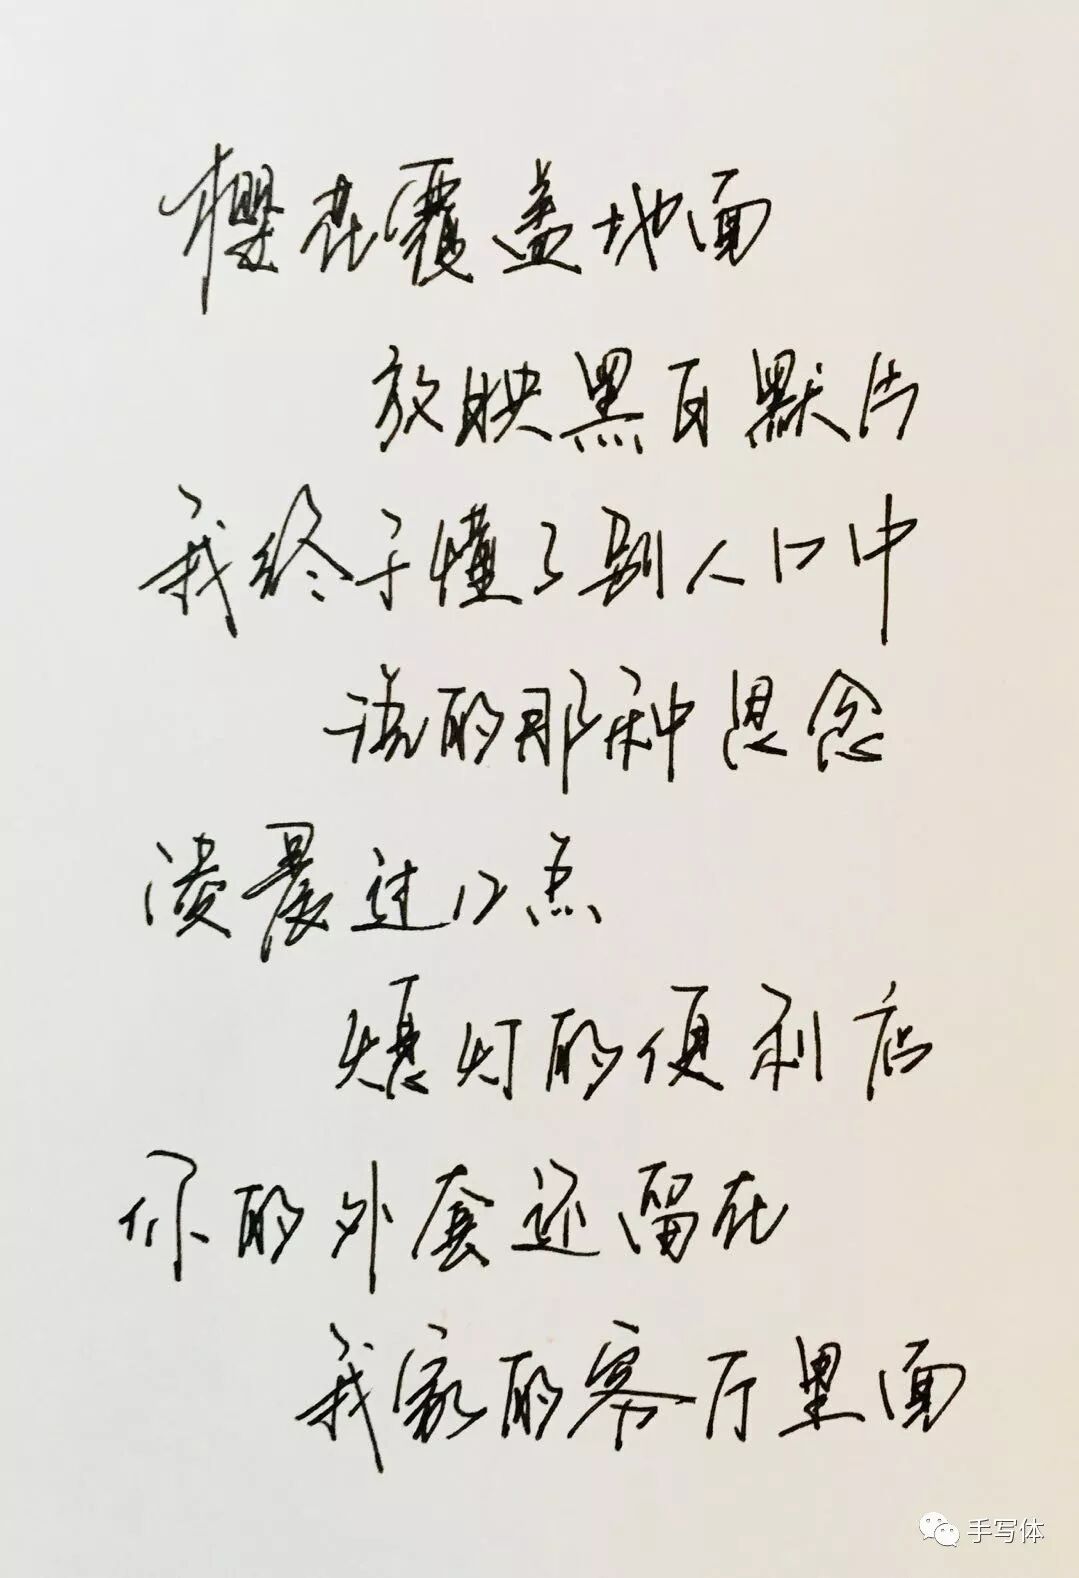 樱花覆盖地面
放映黑白默片
我终于懂了别人口中
说的那种思念
凌晨过12点
熄灯的便利店
你的外套还留在
我家的客厅里面
手写体